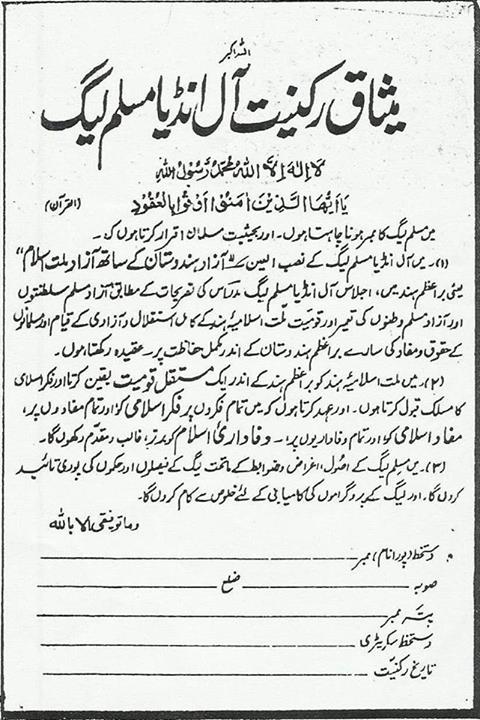 اللہ اکبر
میثاق رکنیت آل انڈیا مسلم لیگ
لَا اِلٰهَ اِلَّا اللهُ مُحَمَّدٌ رَّسُوْلُ اللهِ
يٰۤاَيُّهَا الَّذِيْنَ اٰمَنُوْۤا اَوْفُوْا بِالْعُقُوْدِ (القرآن)
میں مسلم لیگ کا ممبر ہونا چاہتا ہوں۔ اور بحیثیت مسلمان اقرار کرتا ہوں کہ۔
(۱)۔ میں آل انڈیا مسلم لیگ کے نصب العین "آزاد ہندوستان کے ساتھ آزاد ملت اسلام"
یعنی براعظم ہند میں، اجلاس آل انڈیا مسلم لیگ مدراس کی تصریحات کے مطابق آزاد مسلم سلطنتوں
اور آزاد مسلم وطنوں کی تعمیر اور قومیت ملّت اسلامیۂ ہند کے کامل استقلال و آزادی کے قیام اور مسلمانوں
کے حقوق و مفاد کی سارے براعظم ہندوستان کے اندر مکمل حفاظت پر۔ عقیدہ رکھتا ہوں۔
(۲)۔ میں ملت اسلامیۂ ہند کو براعظم ہند کے اندر ایک مستقل قومیت یقین کرتا اور فکر اسلامی
کا مسلک قبول کرتا ہوں۔ اور عہد کرتا ہوں کہ میں تمام فکروں پر فکر اسلامی کو اور تمام مفادوں پر،
مفاد اسلامی کو اور تمام وفاداریوں پر،۔ وفاداریٔ اسلام کو برتر، غالب و مقدم رکھوں گا۔
(۳)۔ میں مسلم لیگ کے اصُول، اغراض و ضوابط کے ماتحت لیگ کے فیصلوں اور حکموں کی پوری تائید
کروں گا۔ اور لیگ کے پروگراموں کی کامیابی کے لئے خلوص سے کام کروں گا۔
وما توفیقی الا باللہ
دستخط (پورا نام) ممبر
صوبہ ضلع
پتہ ممبر
دستخط سکریٹری
تاریخ رکنیت